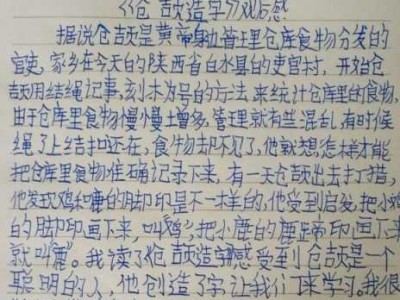 《仓颉造字》观后感
据说仓颉是黄帝身边管理仓库食物分发的
官吏。家乡在今天的陕西省白水县的史官村,开始仓
颉用结绳记事,刻木为号的方法来统计仓库里的食物,
由于仓库里食物慢慢增多,管理就有些混乱有时候
绳子上结扣还在,食物却不见了,他就想怎样才能
把仓库里食物准确记录下来,有一天仓颉出去打猎,
他发现鸡和鹿的脚印是不一样的,他受到启发,把小鸡
的脚印画下来,叫鸡,把小鹿的鹿蹄印画下来
就叫鹿。我读了仓颉造字感受到仓颉是一个
聪明的人,他创造了字让我们来学习。我很